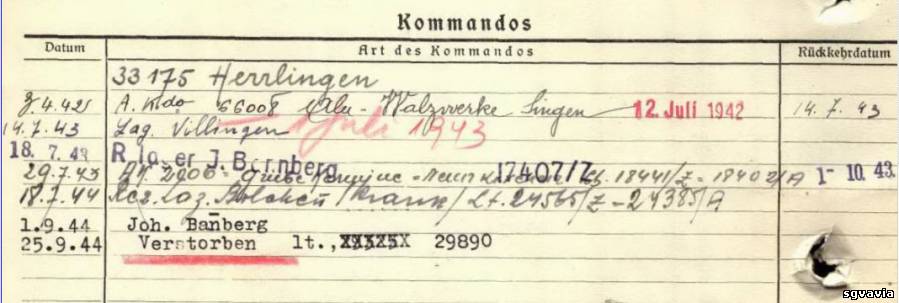 Kommandos
Datum Art des Kommandos Rückkehrdatum
33 175 Herrlingen
4.42 A. Kdo 66008 Alu - Walzwerke Singen 12. Juli 1942 14. 7. 43
14.7.43 Lag. Villingen Juli 1943
18. 7. 43 J. B rnberg 17407/Z 1- 10. 43.
29.7.43 18441/Z - 18402/A
18.7.44 Res. Laz. /krank/ Lt. 24565/Z - 24385/A
1.9.44 Joh. Banberg
25.9.44 Verstorben lt., 29890
sgvavia